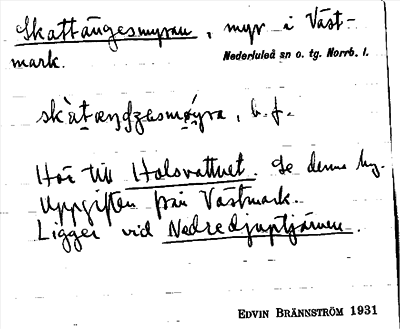 Skattängesmyran, myr i Väst-
mark.
Nederluleå sn o. tg. Norrb. l.
b. f.
Hör till Holsvattnet. Se denna
Uppgiften från Västmark.
Ligger vid Nedre djuptjärnen.
EDVIN BRÄNNSTRÖM 1931